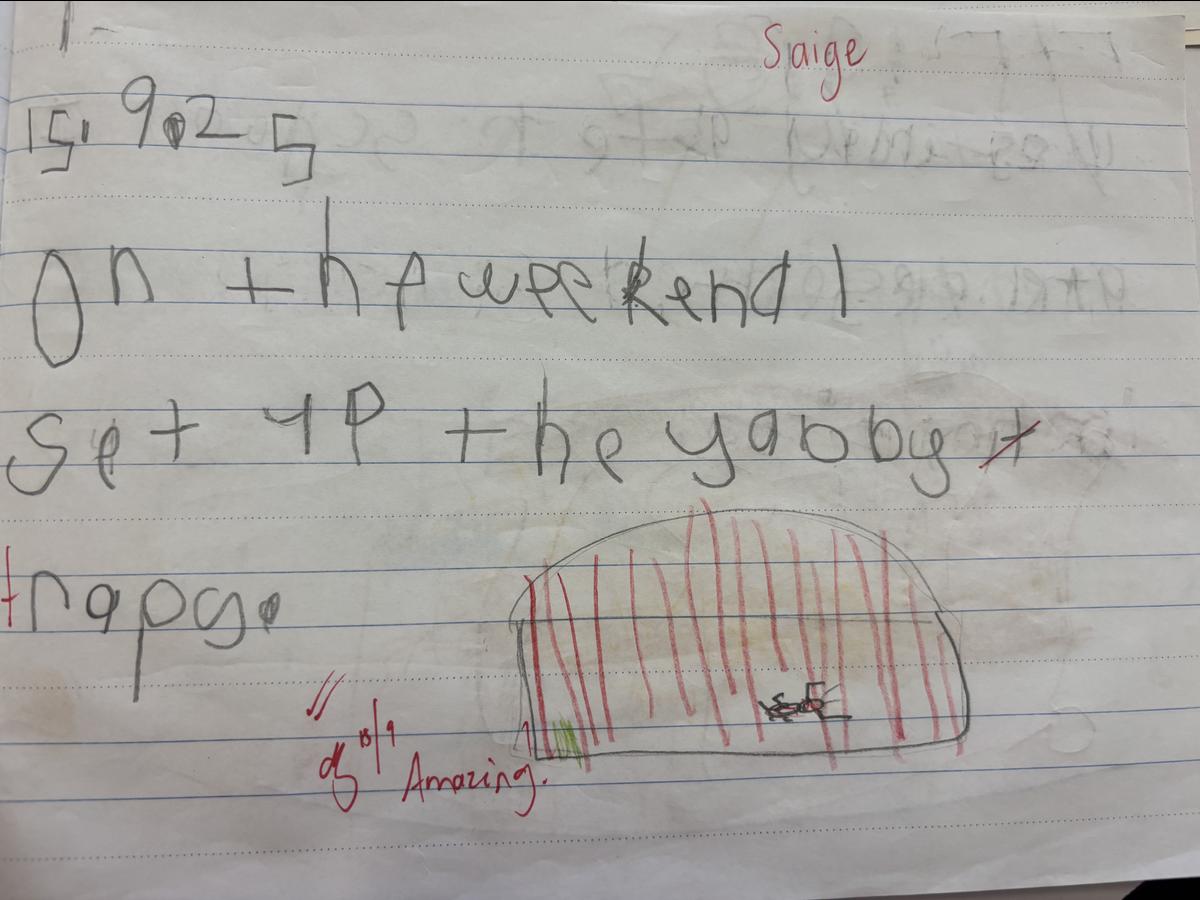 Saige
15.9.25
On the weekend I
set up the yabby t
traps.
15/9
Amazing.